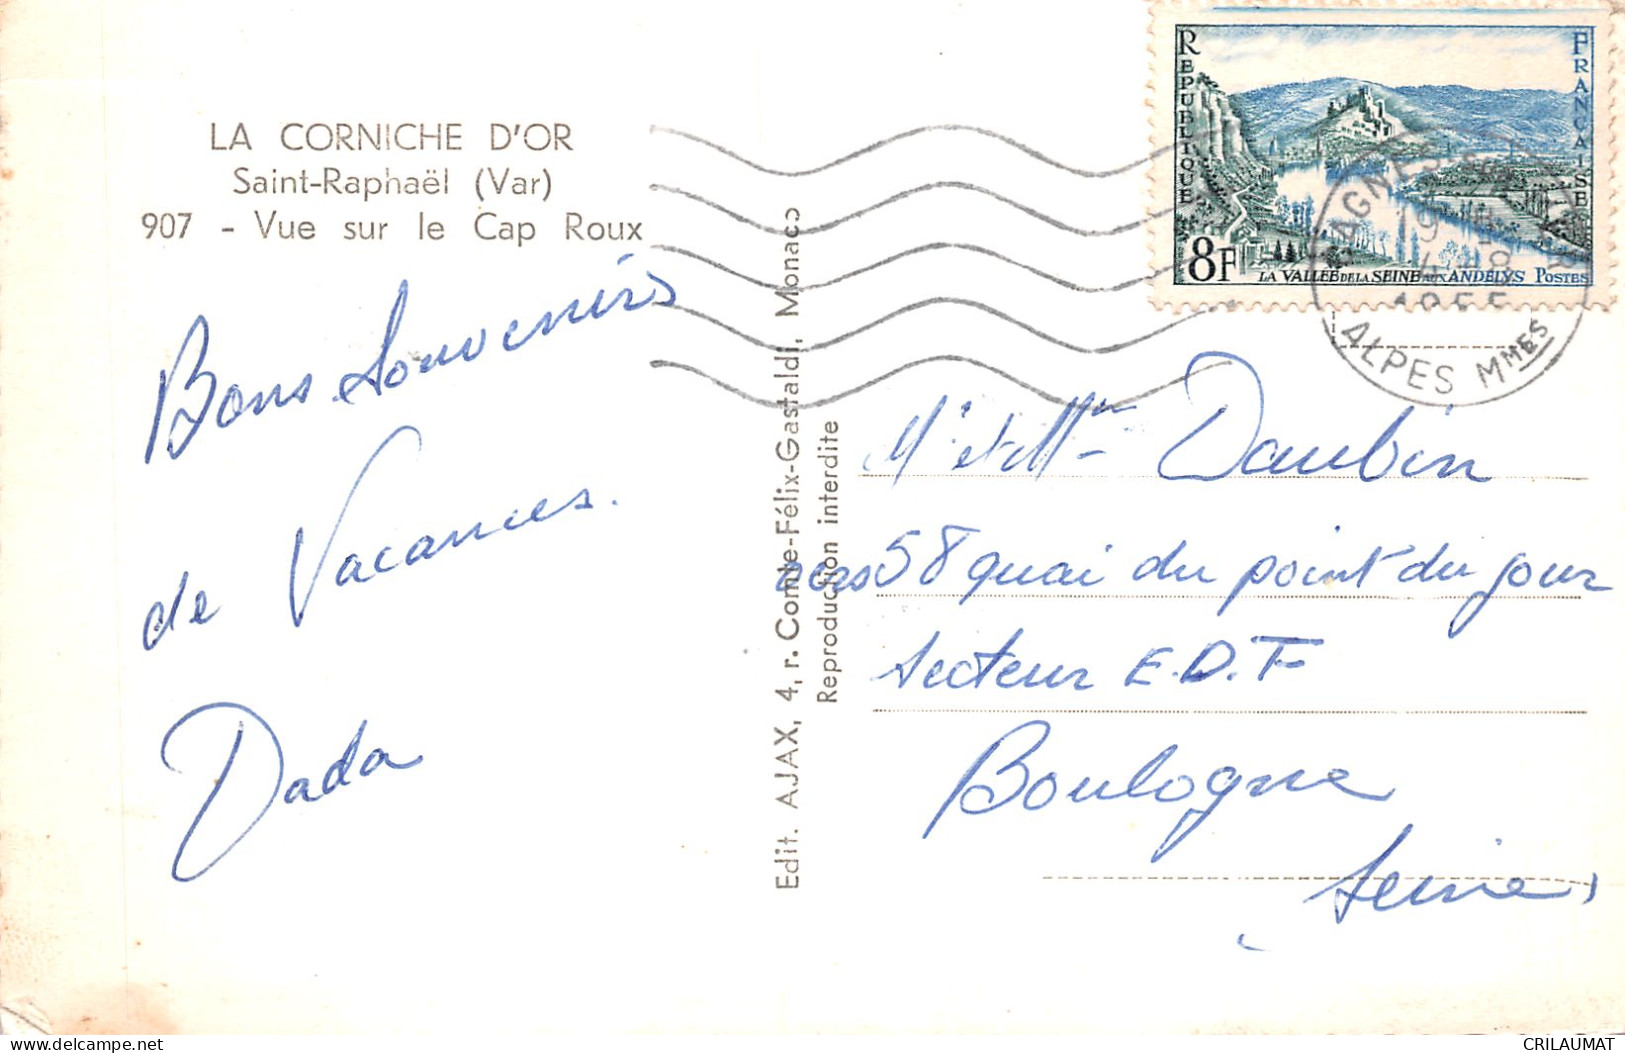 LA CORNICHE D'OR
Saint-Raphaël (Var)
907 - Vue sur le Cap Roux
Bons Souvenirs
de Vacances.
Dada
Edit. AJAX, 4, r. Comte-Félix-Gastaldi, Monaco
Reproduction interdite
REPUBLIQUE
FRANÇAISE
8F
LA VALLÉE DE LA SEINE AUX ANDELYS POSTES
1955
ALPES MMES
Mr et Mme Daubin
58 quai du point du jour
Secteur E.D.F
Boulogne
Seine
CRILAUMAT